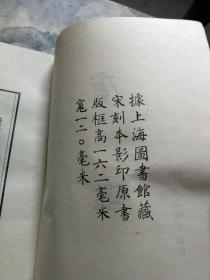 據上海圖書館藏
宋刻本影印原書
版框高一六二毫米
寬一二〇毫米